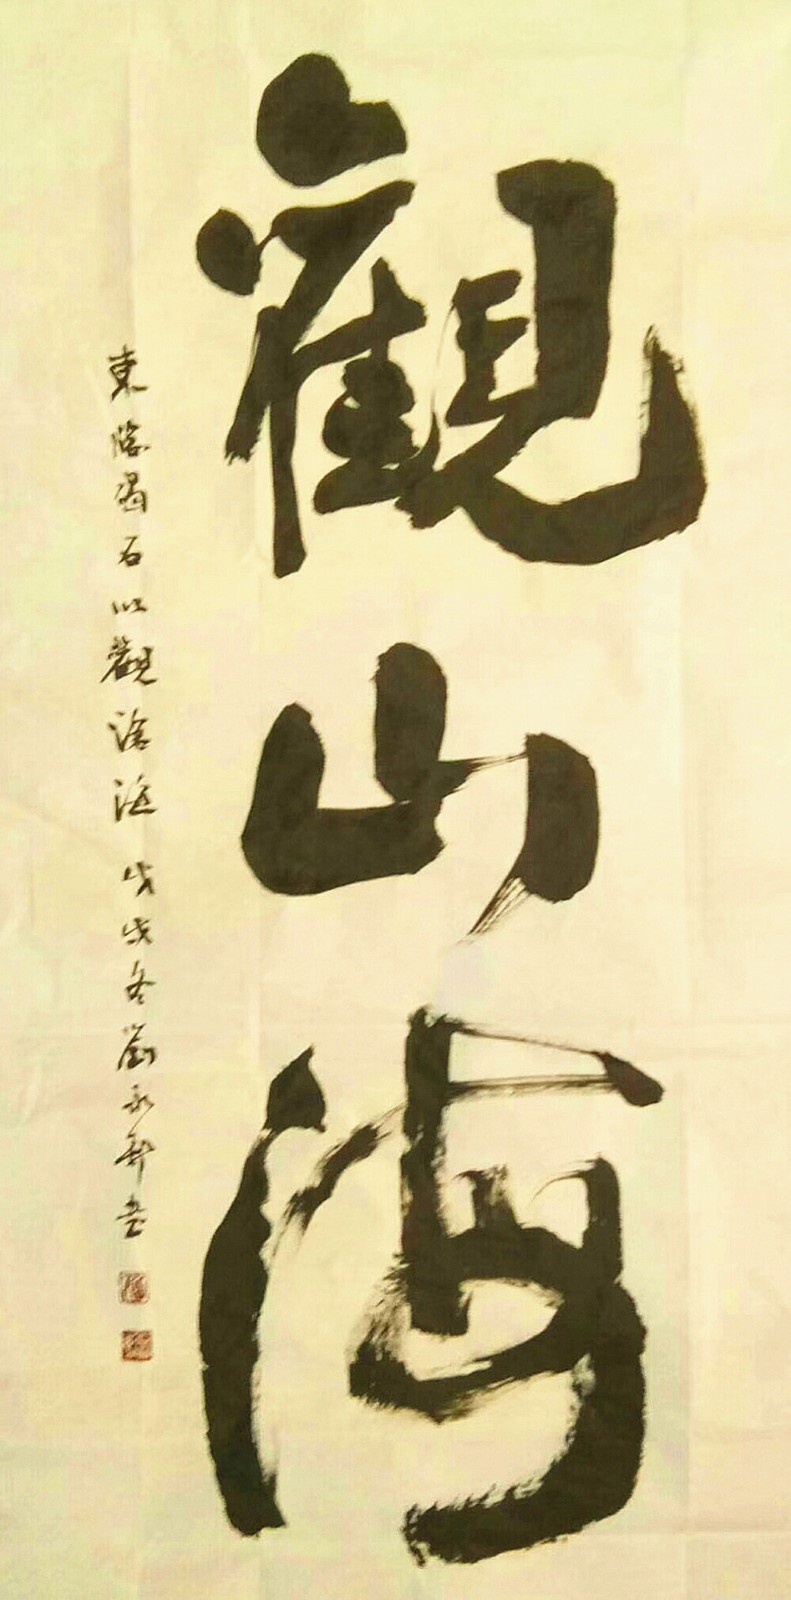 觀山海
東臨碣石以觀滄海 戊戌冬劉永新書